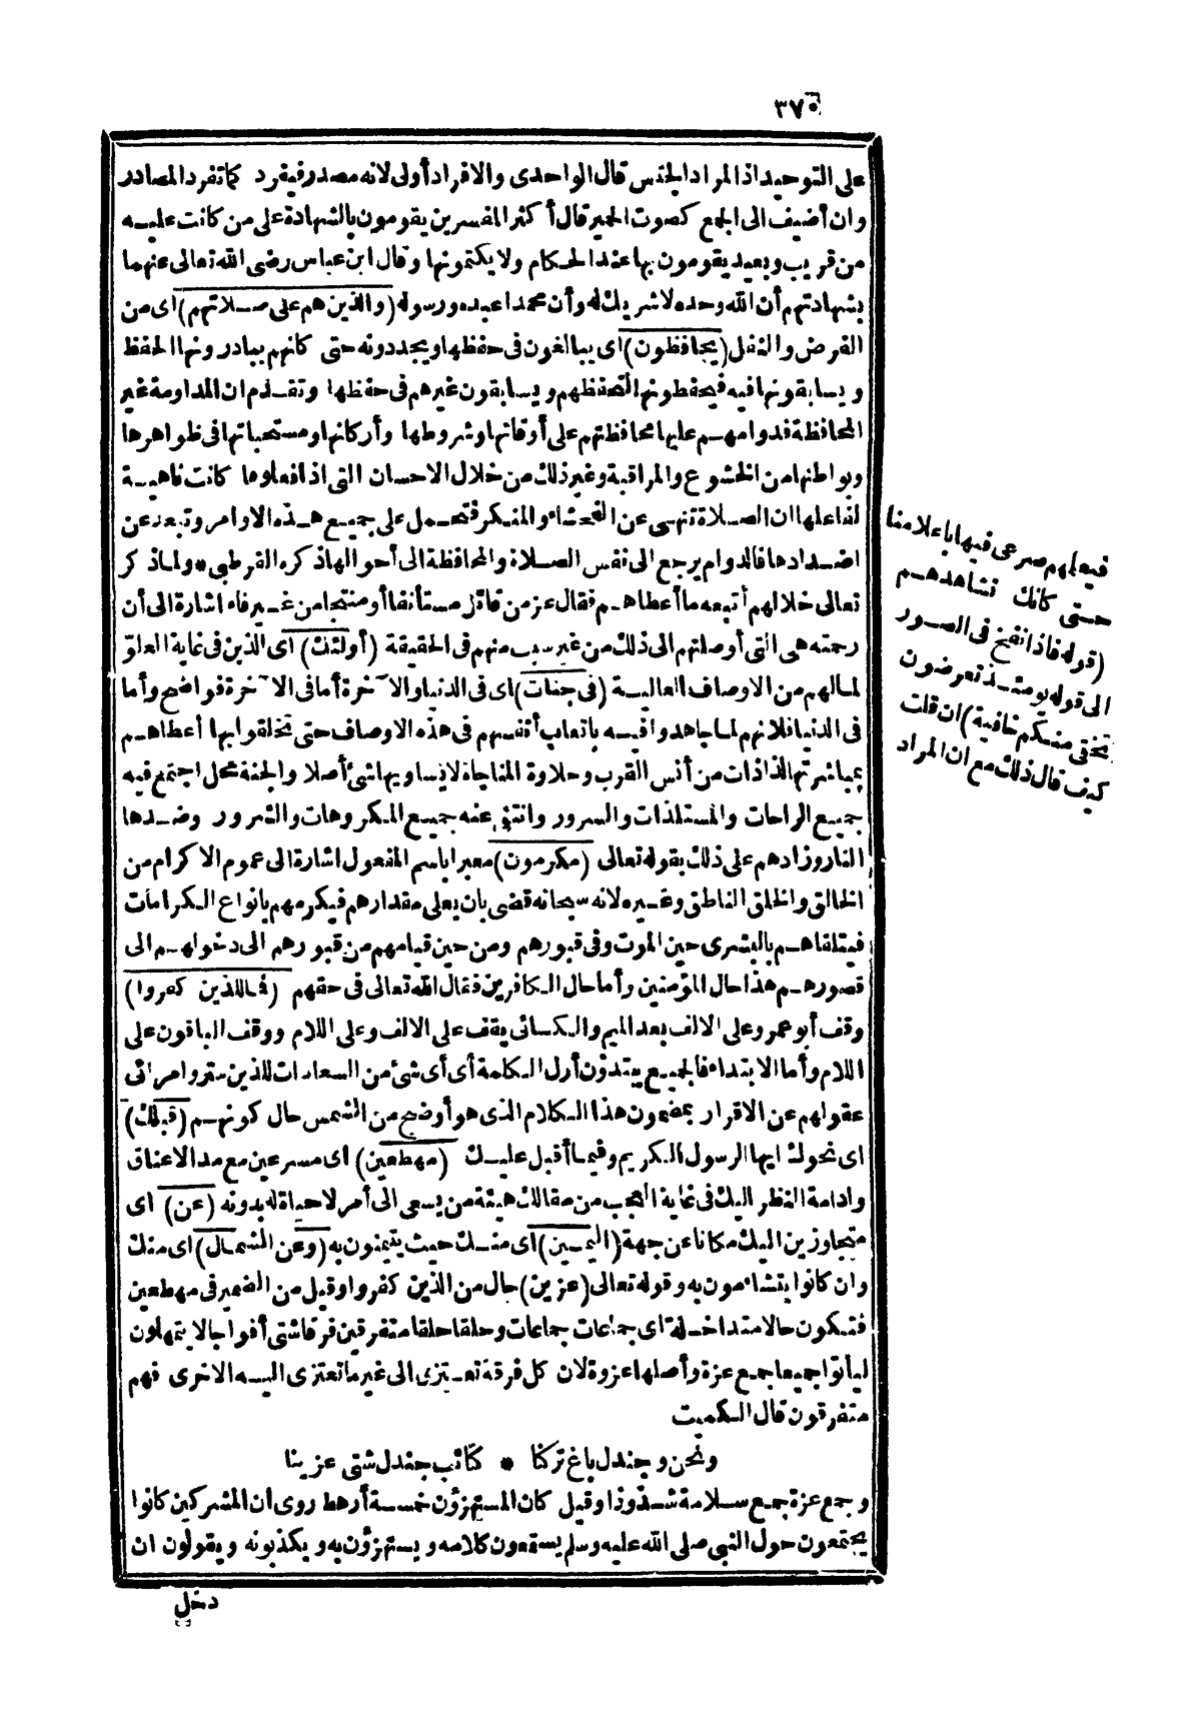 ٣٧٠
على التوحيد اذ المراد الجنس قال الواحدى والافراد أولى لانه مصدر فيفرد كما تفرد المصادر
وان أضيف الى الجمع كصوت الحمير قال أكثر المفسرين يقومون بالشهادة على من كانت عليه
من قريب وبعيد يقومون بها عند الحكام ولا يكتمونها وقال ابن عباس رضى الله تعالى عنهما
بشهادتهم أن الله وحده لا شريك له وأن محمدا عبده ورسوله (والذين هم على صلاتهم) اى من
الفرض والنفل (يحافظون) اى يبالغون فى حفظها ويجددونه حتى كانهم يبادرونها الحفظ
ويسابقونها فيه فيحفظونها لتحفظهم ويسابقون غيرهم فى حفظها وتقدم ان المداومة غير
المحافظة فدوامهم عليها محافظتهم على أوقاتها وشروطها وأركانها ومستحباتها فى ظواهرها
وبواطنها من الخشوع والمراقبة وغير ذلك من خلال الاحسان التى اذا فعلوها كانت ناهية
لفاعلها ان الصلاة تنهى عن الفحشاء والمنكر فتحمل على جميع هذه الاوامر وتبعد عن
اضدادها فالدوام يرجع الى نفس الصلاة والمحافظة الى أحوالها ذكره القرطبى * ولما ذكر
تعالى خلالهم أتبعه ما أعطاهم فقال عز من قائل مستأنفا أو منتجا من غير فاء اشارة الى أن
رحمته هى التى أوصلتهم الى ذلك من غير سبب منهم فى الحقيقة (أولئك) اى الذين فى غاية العلو
لمالهم من الاوصاف العالية (فى جنات) اى فى الدنيا والآخرة أما فى الآخرة فواضح وأما
فى الدنيا فلانهم لما جاهدوا فيه باتعاب أنفسهم فى هذه الاوصاف حتى تخلقوا بها أعطاهم
بمباشرتها لذاذات من أنس القرب وحلاوة المناجاة لا يساويها شئ أصلا والجنة محل اجتمع فيه
جميع الراحات والمستلذات والسرور وانتفى عنه جميع المكروهات والشرور وضدها
النار وزادهم على ذلك بقوله تعالى (مكرمون) معبرا باسم المفعول اشارة الى عموم الاكرام من
الخالق والخلق الناطق وغيره لانه سبحانه قضى بان يعلى مقدارهم فيكرمهم بانواع الكرامات
فيتلقاهم بالبشرى حين الموت وفى قبورهم ومن حين قيامهم من قبورهم الى دخولهم الى
قصورهم هذا حال المؤمنين وأما حال الكافرين فقال الله تعالى فى حقهم (فمال الذين كفروا)
وقف أبو عمرو على الالف بعد الميم والكسائى يقف على الالف وعلى اللام ووقف الباقون على
اللام وأما الابتداء فالجميع يبتدؤن أول الكلمة أى أى شئ من السعادات للذين ستروا مرائى
عقولهم عن الاقرار بمضمون هذا الكلام الذى هو أوضح من الشمس حال كونهم (قبلك)
اى نحوك ايها الرسول الكريم وفيما أقبل عليك (مهطعين) اى مسرعين مع مد الاعناق
وادامة النظر اليك فى غاية العجب من مقالك هيئة من يسعى الى أمر لا حياة له بدونه (عن) اى
متجاوزين اليك مكانا عن جهة (اليمين) اى منك حيث يتيمنون به (وعن الشمال) اى منك
وان كانوا يتشاءمون به وقوله تعالى (عزين) حال من الذين كفروا وقيل من الضمير فى مهطعين
فتكون حالا متداخلة اى جماعات جماعات وحلقا حلقا متفرقين فرقا شتى أفواجا لا يتمهلون
ليأتوا جميعا جمع عزة وأصلها عزوة لان كل فرقة تعتزى الى غير ما تعتزى اليه الاخرى فهم
متفرقون قال الكميت
ونحن وجندل باغ تركنا * كتائب جندل شتى عزينا
وجمع عزة جمع سلامة شذوذا وقيل كان المستهزؤن خمسة أرهط روى ان المشركين كانوا
يجتمعون حول النبى صلى الله عليه وسلم يستمعون كلامه ويستهزؤن به ويكذبونه ويقولون ان
دخل
فيعلهم صرعى فيها باعلامنا
حتى كانك تشاهدهم
(قوله فاذا نفخ فى الصور
الى قوله يومئذ تعرضون
لا تخفى منكم خافية) ان قلت
كيف قال ذلك مع ان المراد